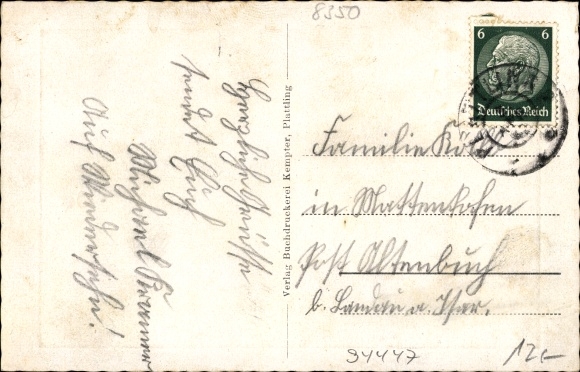 8350
6 6
Deutsches Reich
Herzliche Grüsse
sendet Euch
Michael
Auf Wiedersehn!
Verlag Buchdruckerei Kempter, Plattling
Familie
in Mattenkofen
Post Altenbuch
b. Landau a. Isar.
94447
12,-